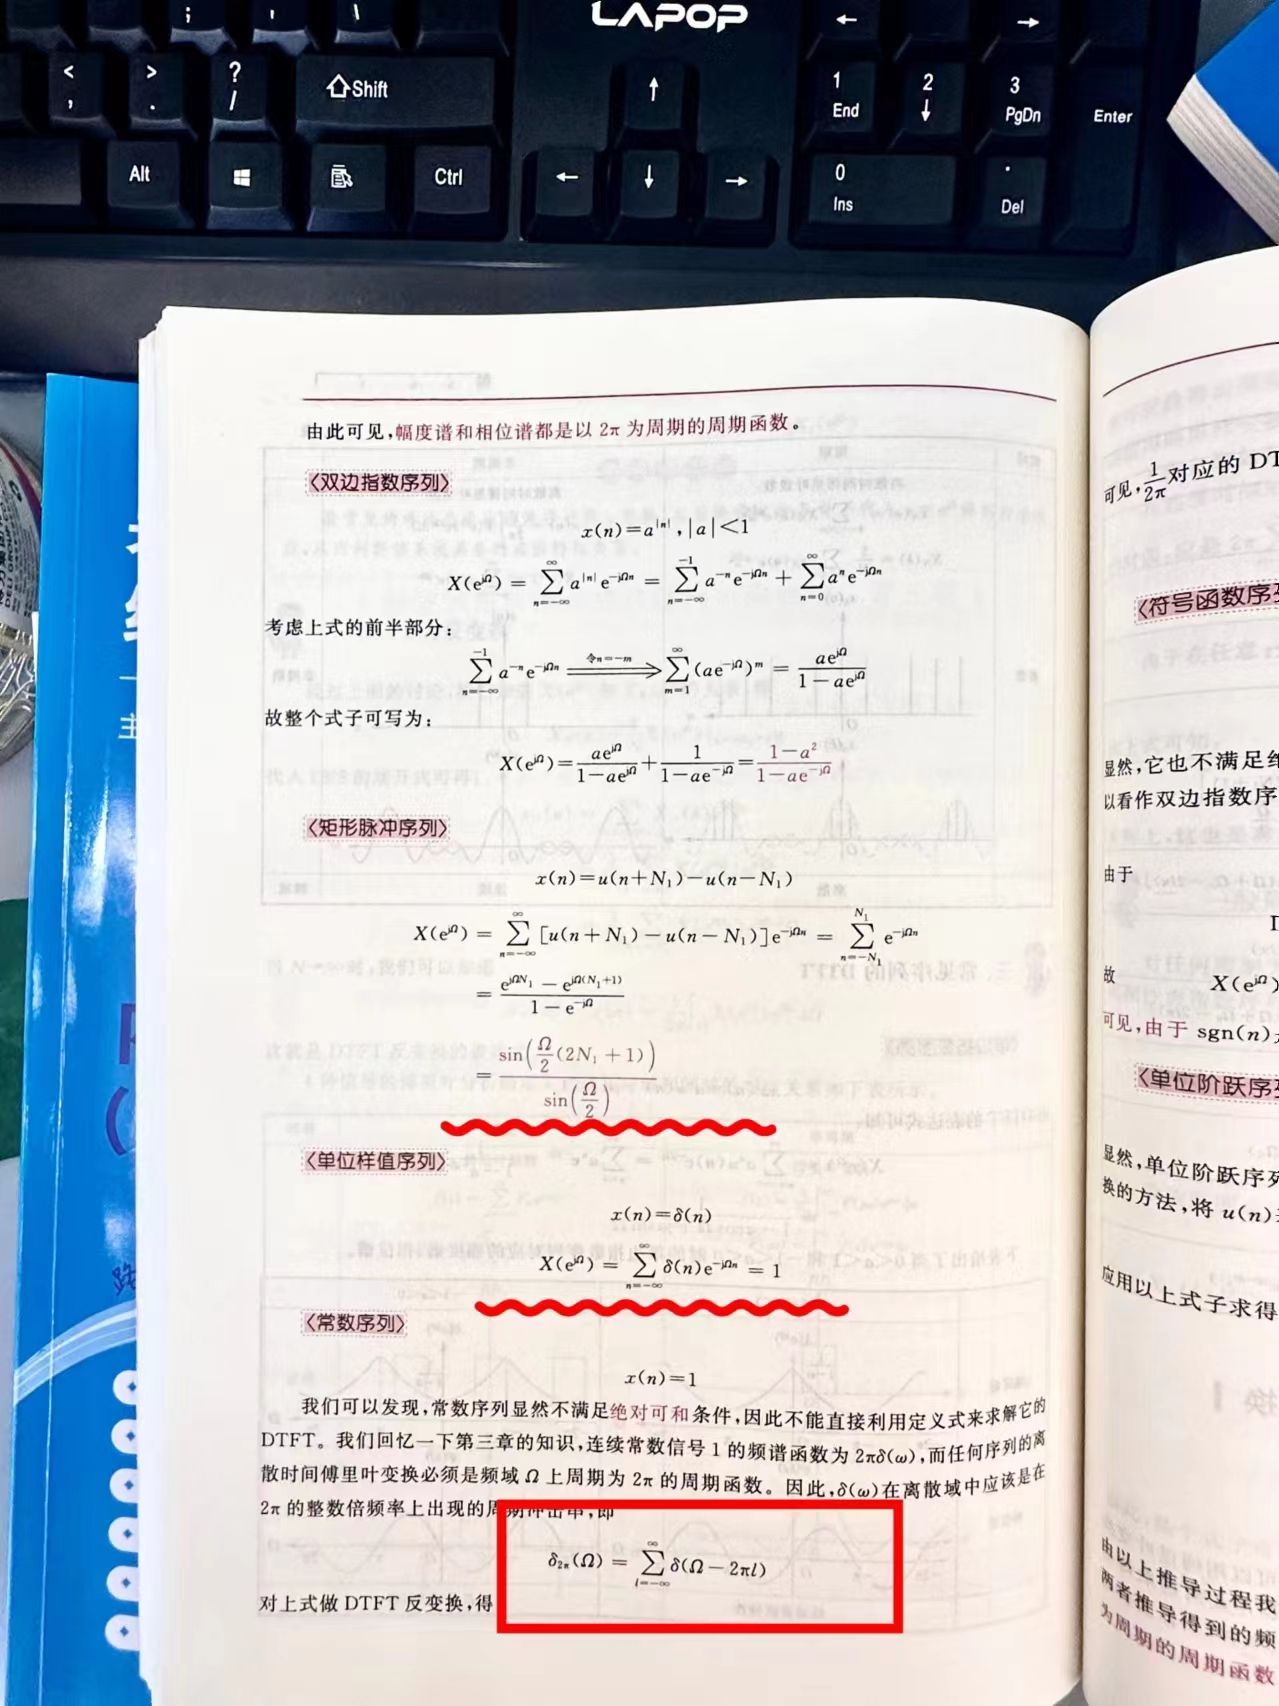 LAPOP
;
'
\
←
→
<
,
>
.
?
/
Shift
↑
1
End
2
↓
3
PgDn
Enter
Alt
Ctrl
←
↓
→
0
Ins
.
Del
由此可见,幅度谱和相位谱都是以 2π 为周期的周期函数。
〈双边指数序列〉
x(n)=a^{|n|}, |a|<1
X(e^{jΩ}) = ∑_{n=-∞}^{∞} a^{|n|}e^{-jΩn} = ∑_{n=-∞}^{-1} a^{-n}e^{-jΩn} + ∑_{n=0}^{∞} a^n e^{-jΩn}
考虑上式的前半部分:
∑_{n=-∞}^{-1} a^{-n}e^{-jΩn} ⟹(令n=-m) ∑_{m=1}^{∞} (ae^{-jΩ})^m = ae^{jΩ}/(1-ae^{jΩ})
故整个式子可写为:
X(e^{jΩ})=ae^{jΩ}/(1-ae^{jΩ})+1/(1-ae^{-jΩ})=(1-a²)/(1-ae^{-jΩ})
〈矩形脉冲序列〉
x(n)=u(n+N₁)-u(n-N₁)
X(e^{jΩ}) = ∑_{n=-∞}^{∞} [u(n+N₁)-u(n-N₁)]e^{-jΩn} = ∑_{n=-N₁}^{N₁} e^{-jΩn}
= (e^{jΩN₁} - e^{jΩ(N₁+1)})/(1-e^{-jΩ})
= sin(Ω/2(2N₁+1))/sin(Ω/2)
〈单位样值序列〉
x(n)=δ(n)
X(e^{jΩ}) = ∑_{n=-∞}^{∞} δ(n)e^{-jΩn} = 1
〈常数序列〉
x(n)=1
我们可以发现,常数序列显然不满足绝对可和条件,因此不能直接利用定义式来求解它的
DTFT。我们回忆一下第三章的知识,连续常数信号 1 的频谱函数为 2πδ(ω),而任何序列的离
散时间傅里叶变换必须是频域 Ω 上周期为 2π 的周期函数。因此,δ(ω)在离散域中应该是在
2π 的整数倍频率上出现的周期冲击串,即
δ_{2π}(Ω) = ∑_{l=-∞}^{∞} δ(Ω-2πl)
对上式做 DTFT 反变换,得
可见,1/2π对应的 DT
〈符号函数序列
显然,它也不满足绝
以看作双边指数序
由于
故
X(e^{jΩ})
可见,由于 sgn(n)
〈单位阶跃序
显然,单位阶跃序列
换的方法,将 u(n)
应用以上式子求得
由以上推导过程我
两者推导得到的频
为周期的周期函数
主
路